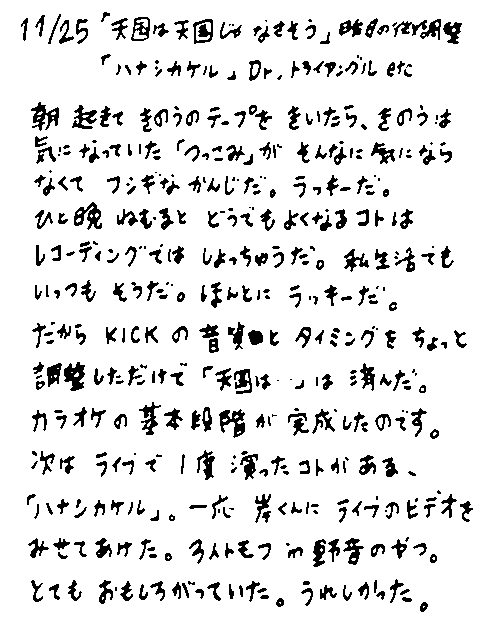 11/25「天国は天国じゃなさそう」昨日の続き調整
「ハナシカケル」Dr, トライアングル etc
朝 起きて きのうのテープを きいたら、きのうは
気に なっていた「つっこみ」が そんなに 気になら
なくて フシギな かんじだ。ラッキーだ。
ひと晩 ねむると どうでもよくなるコトは
レコーディングでは しょっちゅうだ。私生活でも
いつも そうだ。ほんとに ラッキーだ。
だから KICK の 音質と タイミングを ちょっと
調整しただけで「天国は…」は 済んだ。
カラオケの 基本段階が 完成したのです。
次は ライブで 1度 演ったコトがある、
「ハナシカケル」。一応 岸くんに ライブのビデオを
みせてあげた。3人トモフ in 野音のやつ。
とても おもしろがっていた。うれしかった。